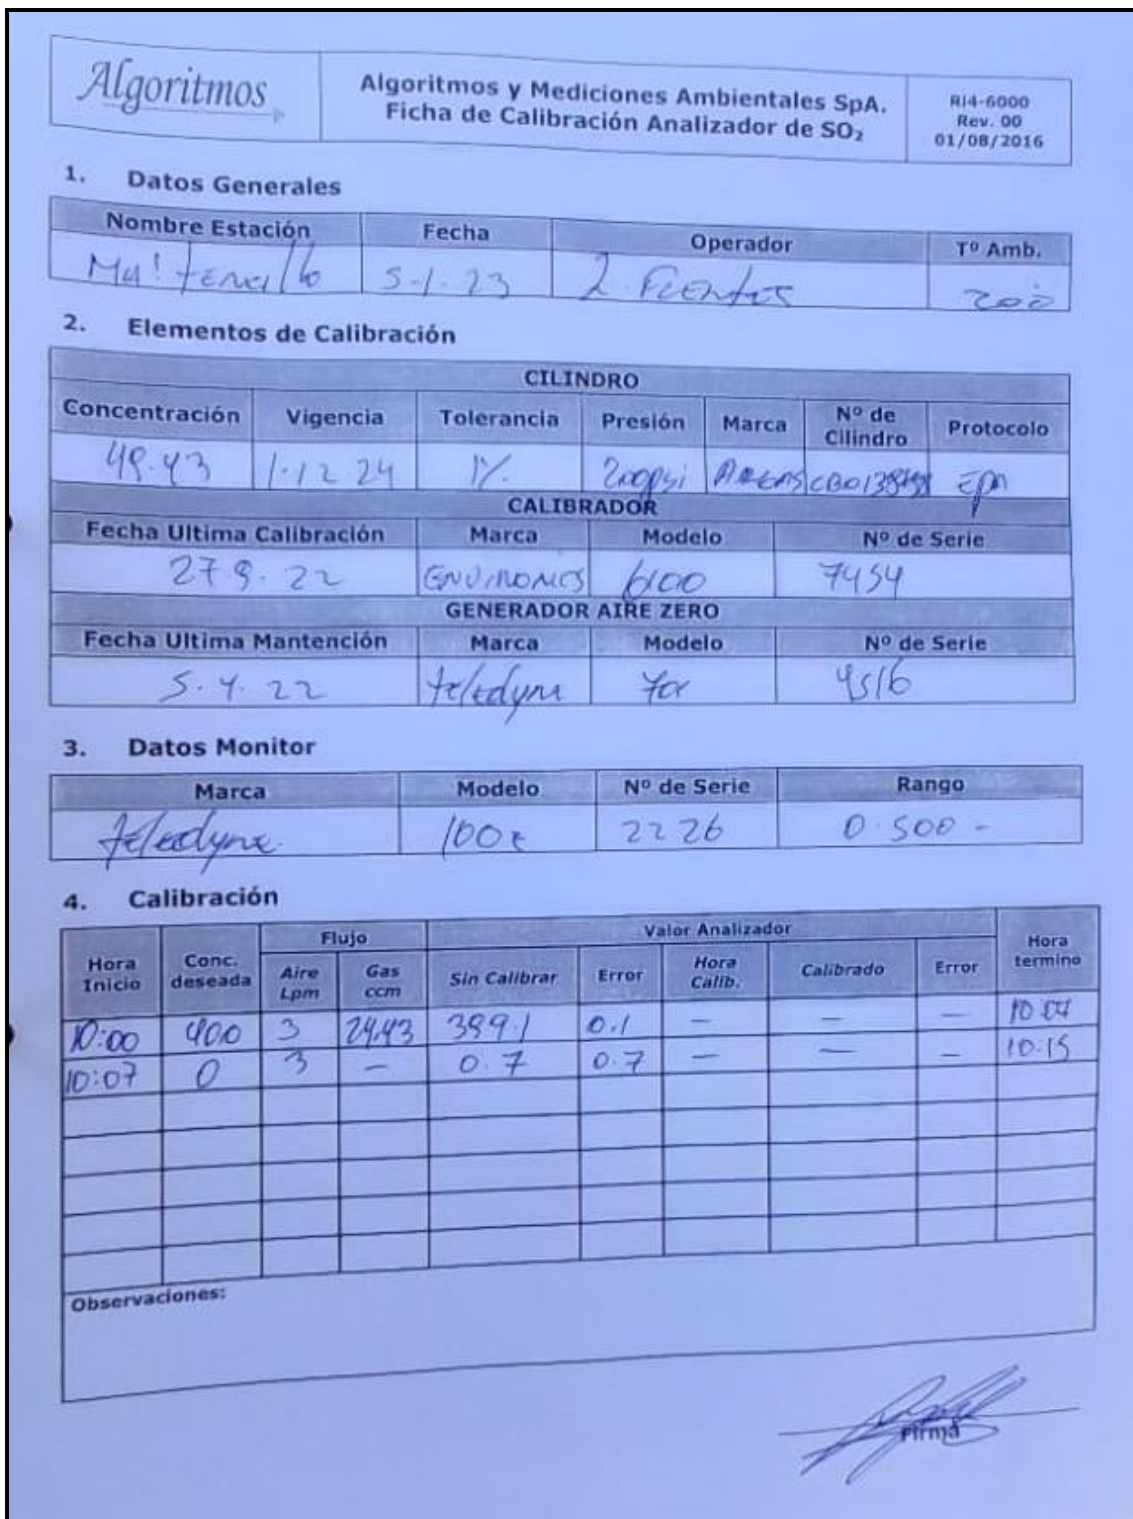 Algoritmos
Algoritmos y Mediciones Ambientales SpA.
Ficha de Calibración Analizador de SO₂
RI4-6000
Rev. 00
01/08/2016
1. Datos Generales
Nombre Estación Fecha Operador Tº Amb.
5-1.23 L. Fuentes
2. Elementos de Calibración
CILINDRO
Concentración Vigencia Tolerancia Presión Marca Nº de Cilindro Protocolo
49.43 1.12.24 1% 200psi EPA
CALIBRADOR
Fecha Ultima Calibración Marca Modelo Nº de Serie
27 9. 22 6100 7454
GENERADOR AIRE ZERO
Fecha Ultima Mantención Marca Modelo Nº de Serie
5. 4. 22 teledyne 4516
3. Datos Monitor
Marca Modelo Nº de Serie Rango
teledyne 100E 2226 0.500 -
4. Calibración
Hora Inicio Conc. deseada Flujo Valor Analizador Hora termino
Aire Lpm Gas ccm Sin Calibrar Error Hora Calib. Calibrado Error
10:00 400 3 24.43 399.1 0.1 — — — 10:07
10:07 0 3 — 0.7 0.7 — — — 10:15
Observaciones:
Firma